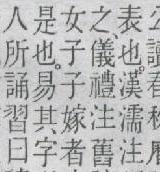 公讀有称歴
表也。漢有濡注
之、儀禮注舊
女子子嫁者
是也。易其字
人所誦習日